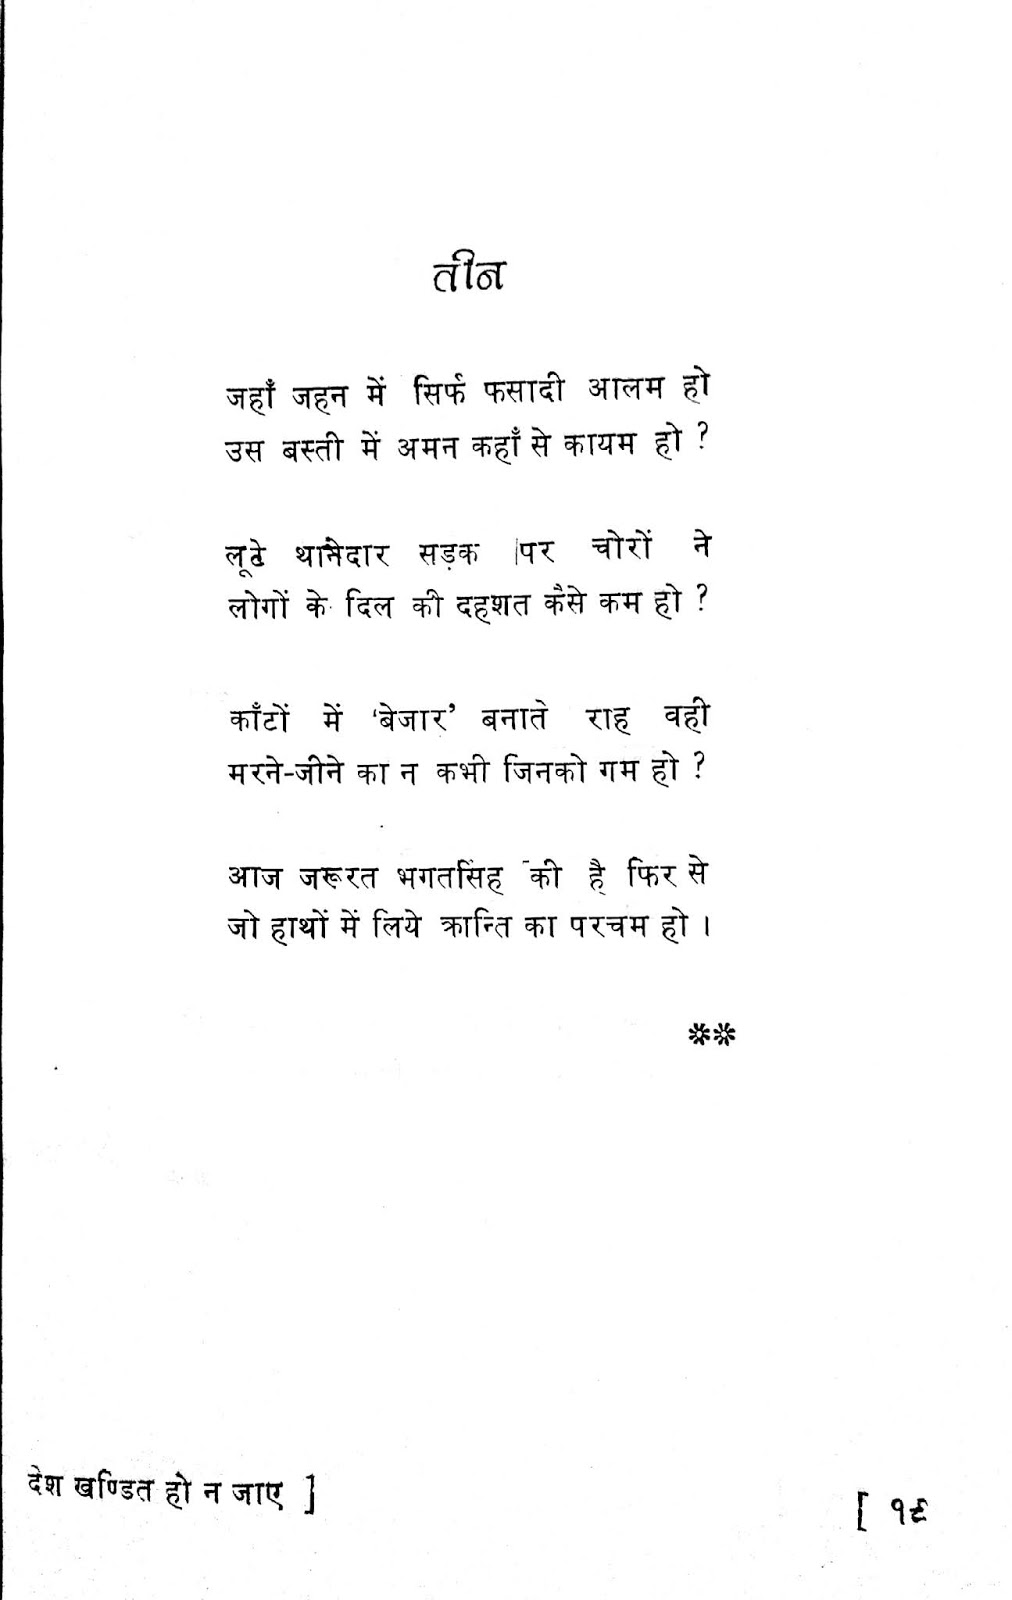 तीन
जहाँ जहन में सिर्फ फसादी आलम हो
उस बस्ती में अमन कहाँ से कायम हो ?
लूटे थानेदार सड़क पर चोरों ने
लोगों के दिल की दहशत कैसे कम हो ?
काँटों में ‘बेजार’ बनाते राह वही
मरने-जीने का न कभी जिनको गम हो ?
आज जरूरत भगतसिंह की है फिर से
जो हाथों में लिये क्रान्ति का परचम हो ।
**
देश खण्डित हो न जाए ]
[ १९